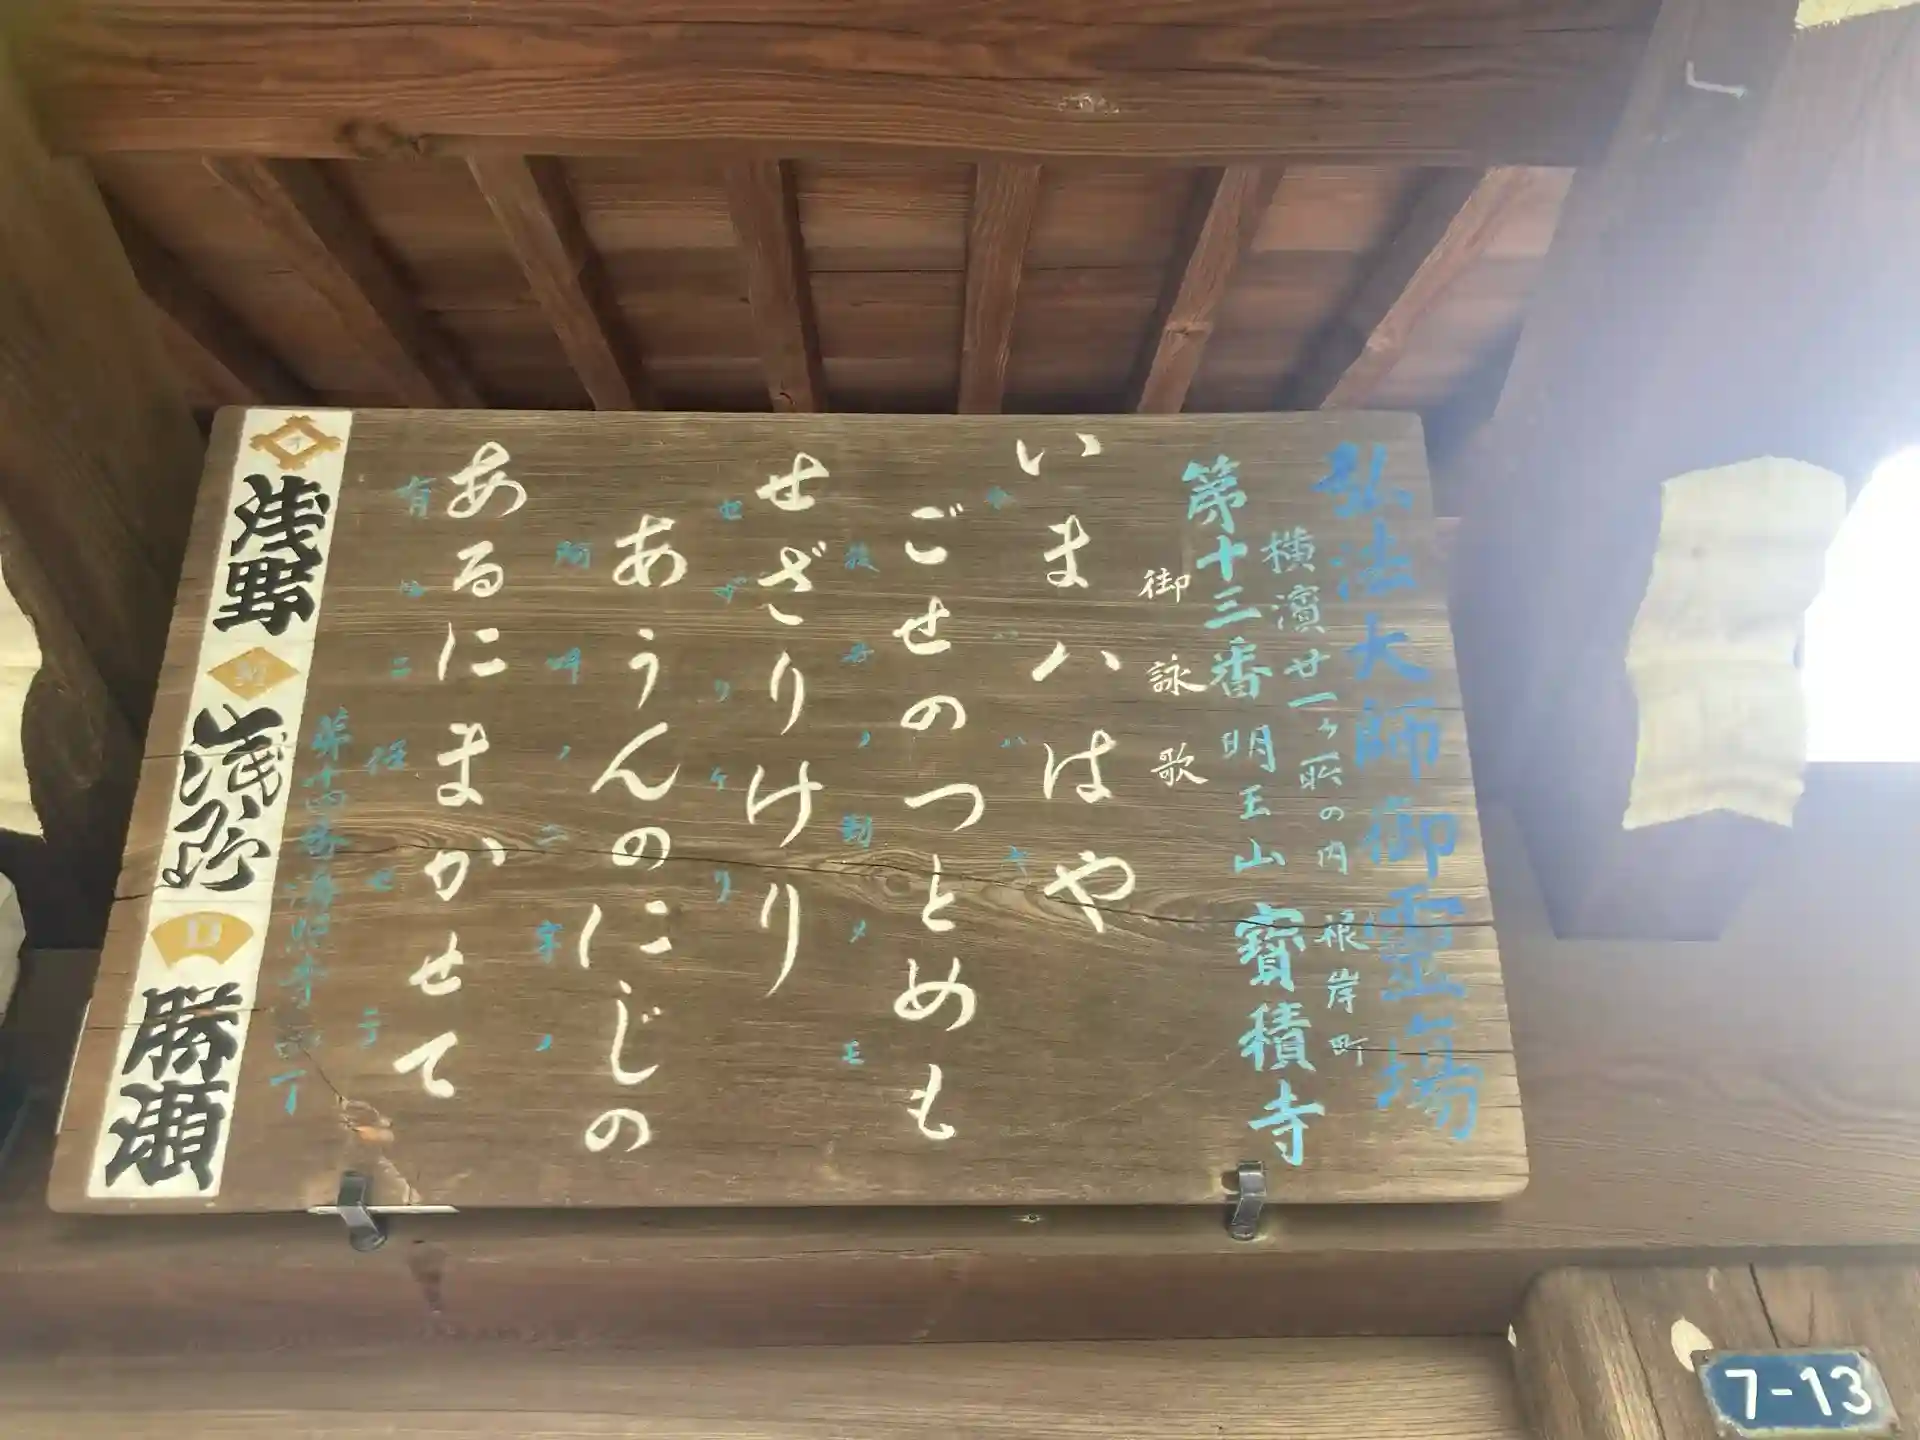 弘法大師御霊場
横濱廿一ヶ所の内 根岸町
第十三番 明王山 寳積寺
御詠歌
いまハはや
今ハハヤ
ごせのつとめも
後世ノ勤メモ
せざりけり
セザリケリ
あうんのにじの
阿吽ノ二字ノ
あるにまかせて
有ルニ任セテ
浅野
浅野
勝瀬
7-13